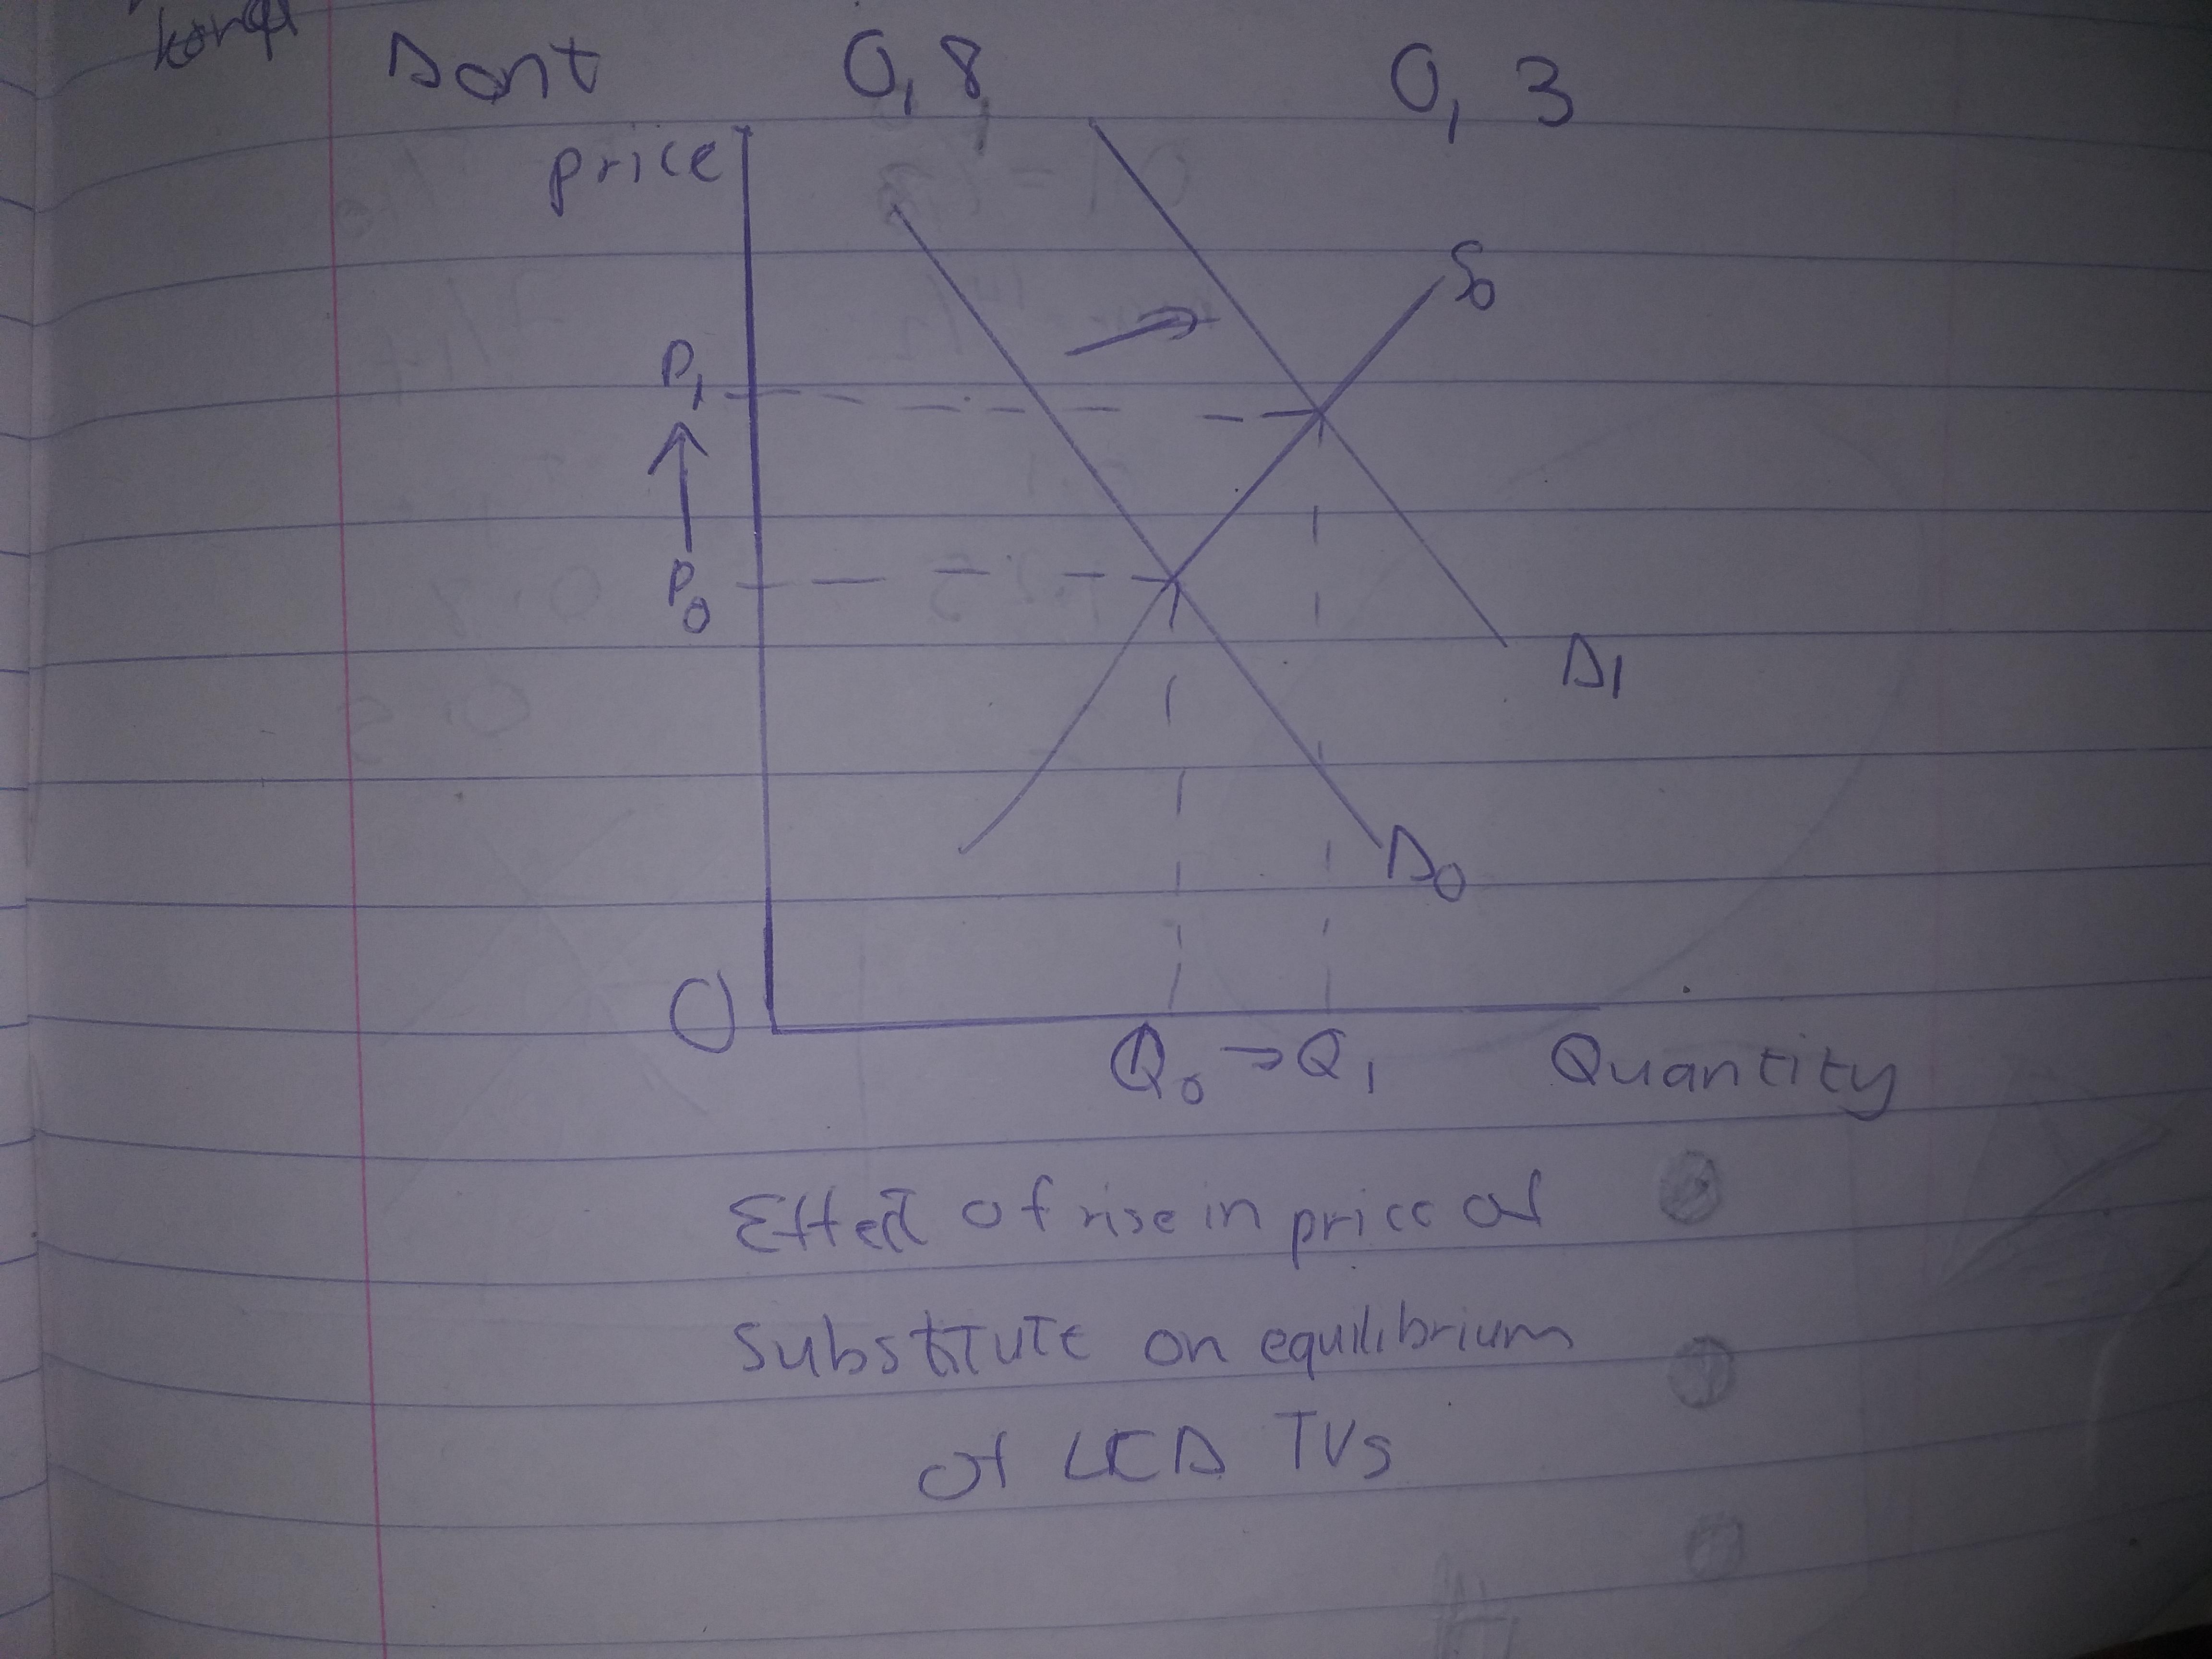 Dont 0,8 0,3
price
S0
P1
P0
D1
D0
O
Q0 → Q1 Quantity
Effect of rise in price of
substitute on equilibrium
of LCD TVs